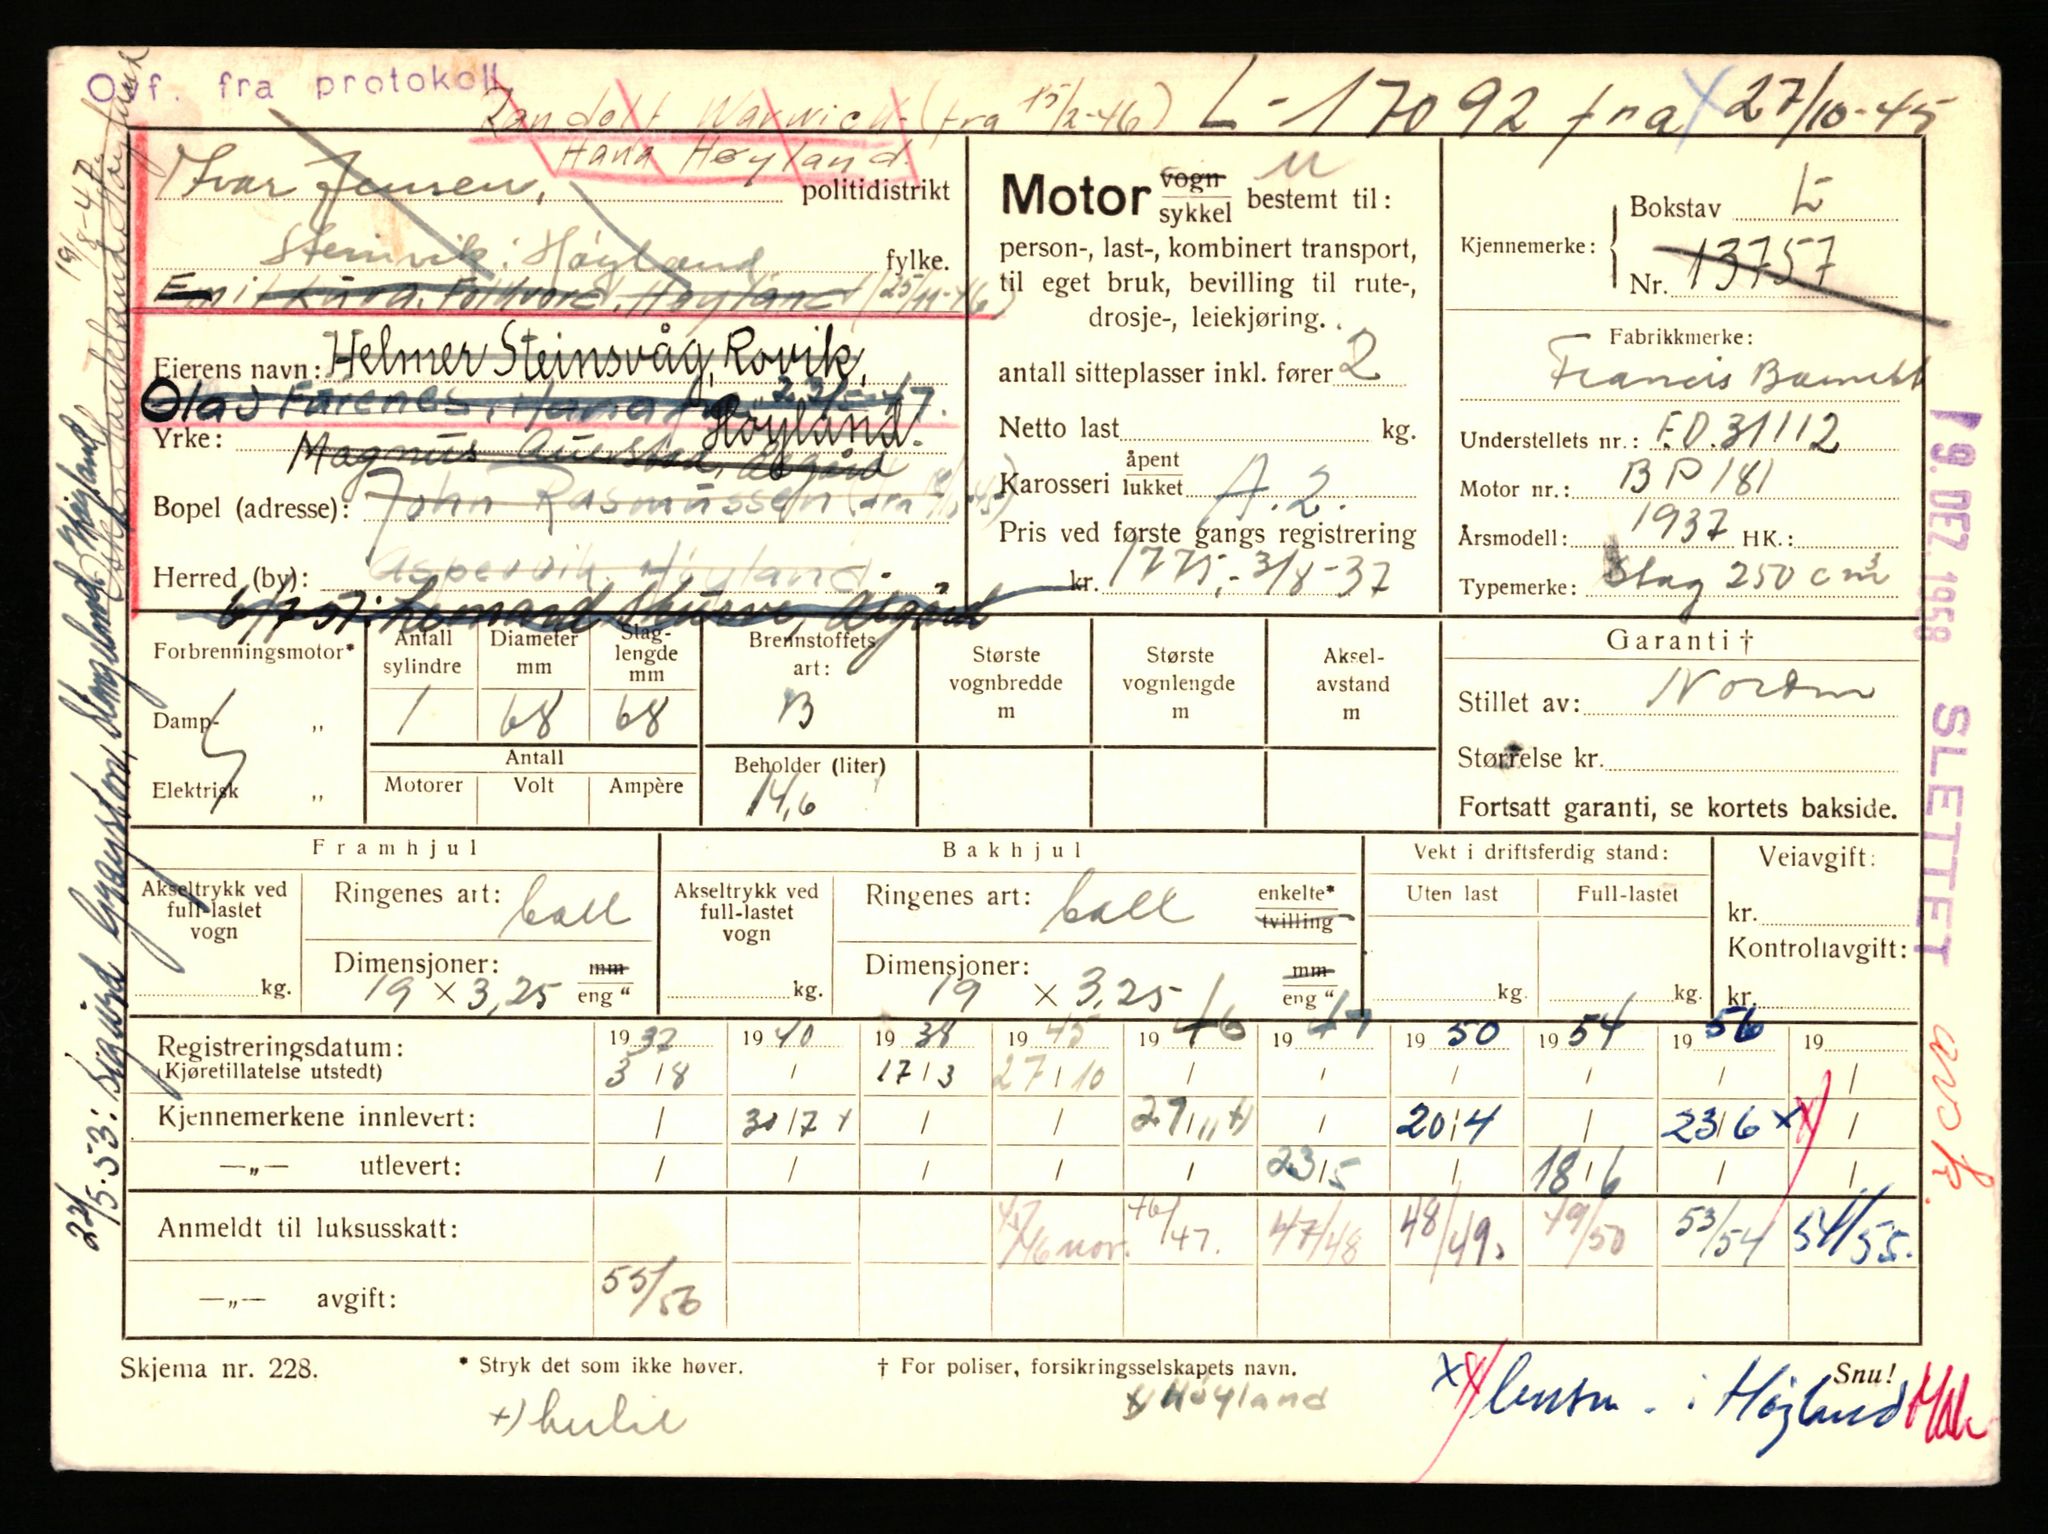 Ovf. fra protokoll
Randolf Warwick (fra 15/2-46) L-17092 fra X 27/10-45
Hana Høyland.
Ivar Jensen, politidistrikt
Steinvik i Høyland fylke.
Emil Kura, Folkvord, Høyland (25/11-46)
Eierens navn: Helmer Steinsvåg, Rovik,
Olav Furenes, Hana 23/5-47.
Yrke: Høyland.
Magnus Auestad, Ålgård
Bopel (adresse): John Rasmussen
Herred (by): Aspervik, Høyland
6/7-51: Lennard Skurve, Ålgård
Motor vogn/sykkel bestemt til:
person-, last-, kombinert transport,
til eget bruk, bevilling til rute-,
drosje-, leiekjøring.
antall sitteplasser inkl. fører 2
Netto last kg.
Karosseri åpent/lukket A. 2.
Pris ved første gangs registrering
kr. 1775,- 3/8-37
Kjennemerke: Bokstav L
Nr. 13757
Fabrikkmerke:
Francis Barnett
Understellets nr.: F.D.31112
Motor nr.: BP 181
Årsmodell: 1937 HK.:
Typemerke: Slag 250 cm3
Forbrenningsmotor*
Damp- „
Elektrisk „
Antall sylindre 1
Diameter mm 68
Slag-lengde mm 68
Brennstoffets art: B
Antall
Motorer Volt Ampère
Beholder (liter) 14,6
Største vognbredde m
Største vognlengde m
Aksel-avstand m
Garanti †
Stillet av:
Størrelse kr.
Fortsatt garanti, se kortets bakside.
Framhjul
Akseltrykk ved full-lastet vogn kg.
Ringenes art: ball
Dimensjoner: 19 x 3,25 mm/eng "
Bakhjul
Akseltrykk ved full-lastet vogn kg.
Ringenes art: ball enkelte*/tvilling
Dimensjoner: 19 x 3,25 mm/eng "
Vekt i driftsferdig stand:
Uten last kg. Full-lastet kg.
Veiavgift:
kr.
Kontrollavgift:
kr.
Registreringsdatum: 1937 1940 1938 1945 1946 1947 1950 1954 1956 19
(Kjøretillatelse utstedt) 3/8 / 17/3 27/10 / / / / / /
Kjennemerkene innlevert: / 30/7 x / / 29/11 x) / 20/4 / 23/6 xx) /
—„— utlevert: / / / / / 23/5 / 18/6 / /
Anmeldt til luksusskatt: 45/46 nov. 46/47. 47/48 48/49. 49/50 53/54 54/55.
—„— avgift: 55/56
Skjema nr. 228. * Stryk det som ikke høver. † For poliser, forsikringsselskapets navn. Snu!
x) Høyland
i Høyland
19/8-47
22/5-53: Sigurd
19. DEZ. 1958 SLETTET